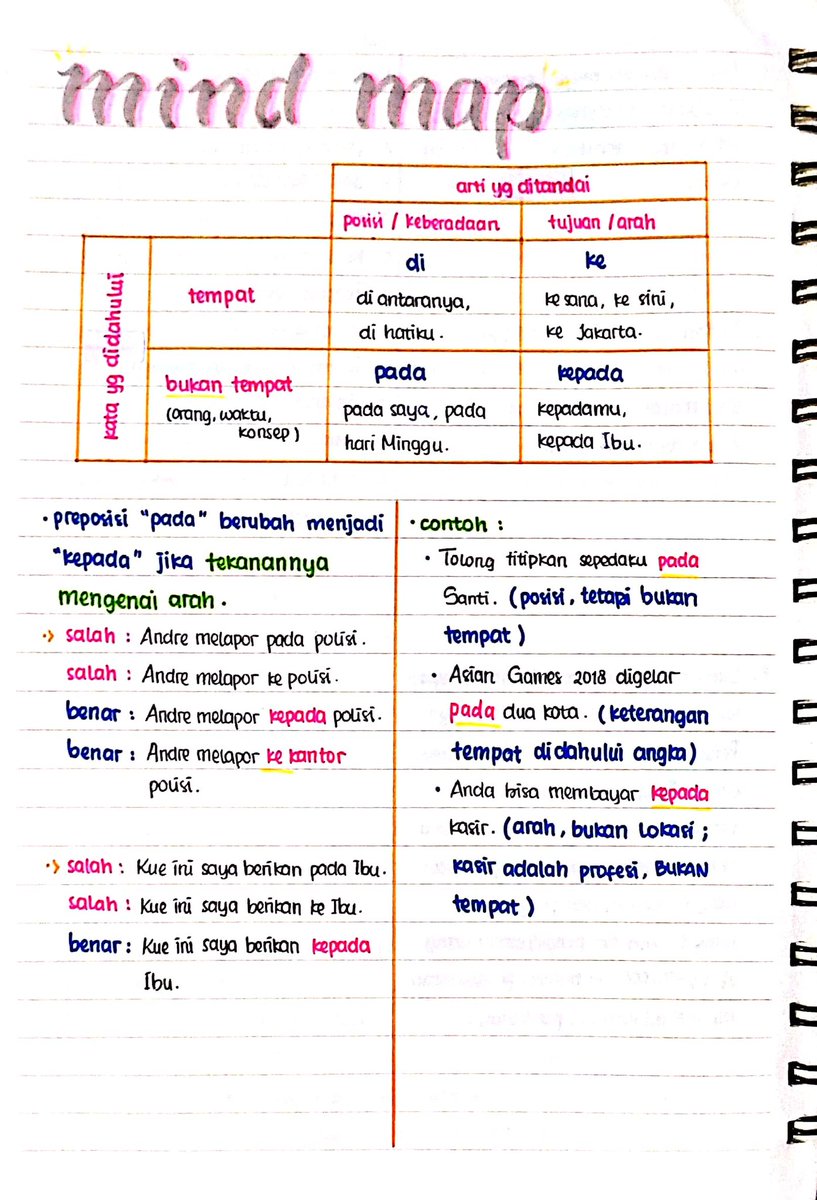 mind map
arti yg ditandai
posisi / keberadaan
tujuan / arah
kata yg didahului
tempat
di
di antaranya,
di hatiku.
ke
ke sana, ke sini,
ke Jakarta.
bukan tempat
(orang, waktu,
konsep)
pada
pada saya, pada
hari Minggu.
kepada
kepadamu,
kepada Ibu.
• preposisi "pada" berubah menjadi
"kepada" jika tekanannya
mengenai arah.
salah : Andre melapor pada polisi.
salah : Andre melapor ke polisi.
benar : Andre melapor kepada polisi.
benar : Andre melapor ke kantor
polisi.
salah : Kue ini saya berikan pada Ibu.
salah : Kue ini saya berikan ke Ibu.
benar : Kue ini saya berikan kepada
Ibu.
• contoh :
• Tolong titipkan sepedaku pada
Santi. (posisi, tetapi bukan
tempat)
• Asian Games 2018 digelar
pada dua kota. (keterangan
tempat didahului angka)
• Anda bisa membayar kepada
kasir. (arah, bukan lokasi ;
kasir adalah profesi, BUKAN
tempat)